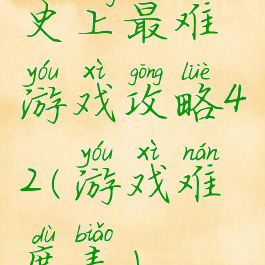 史上最难
yóu xì gōng lüè
游戏攻略4
yóu xì nán
2(游戏难
dù biǎo
度表)